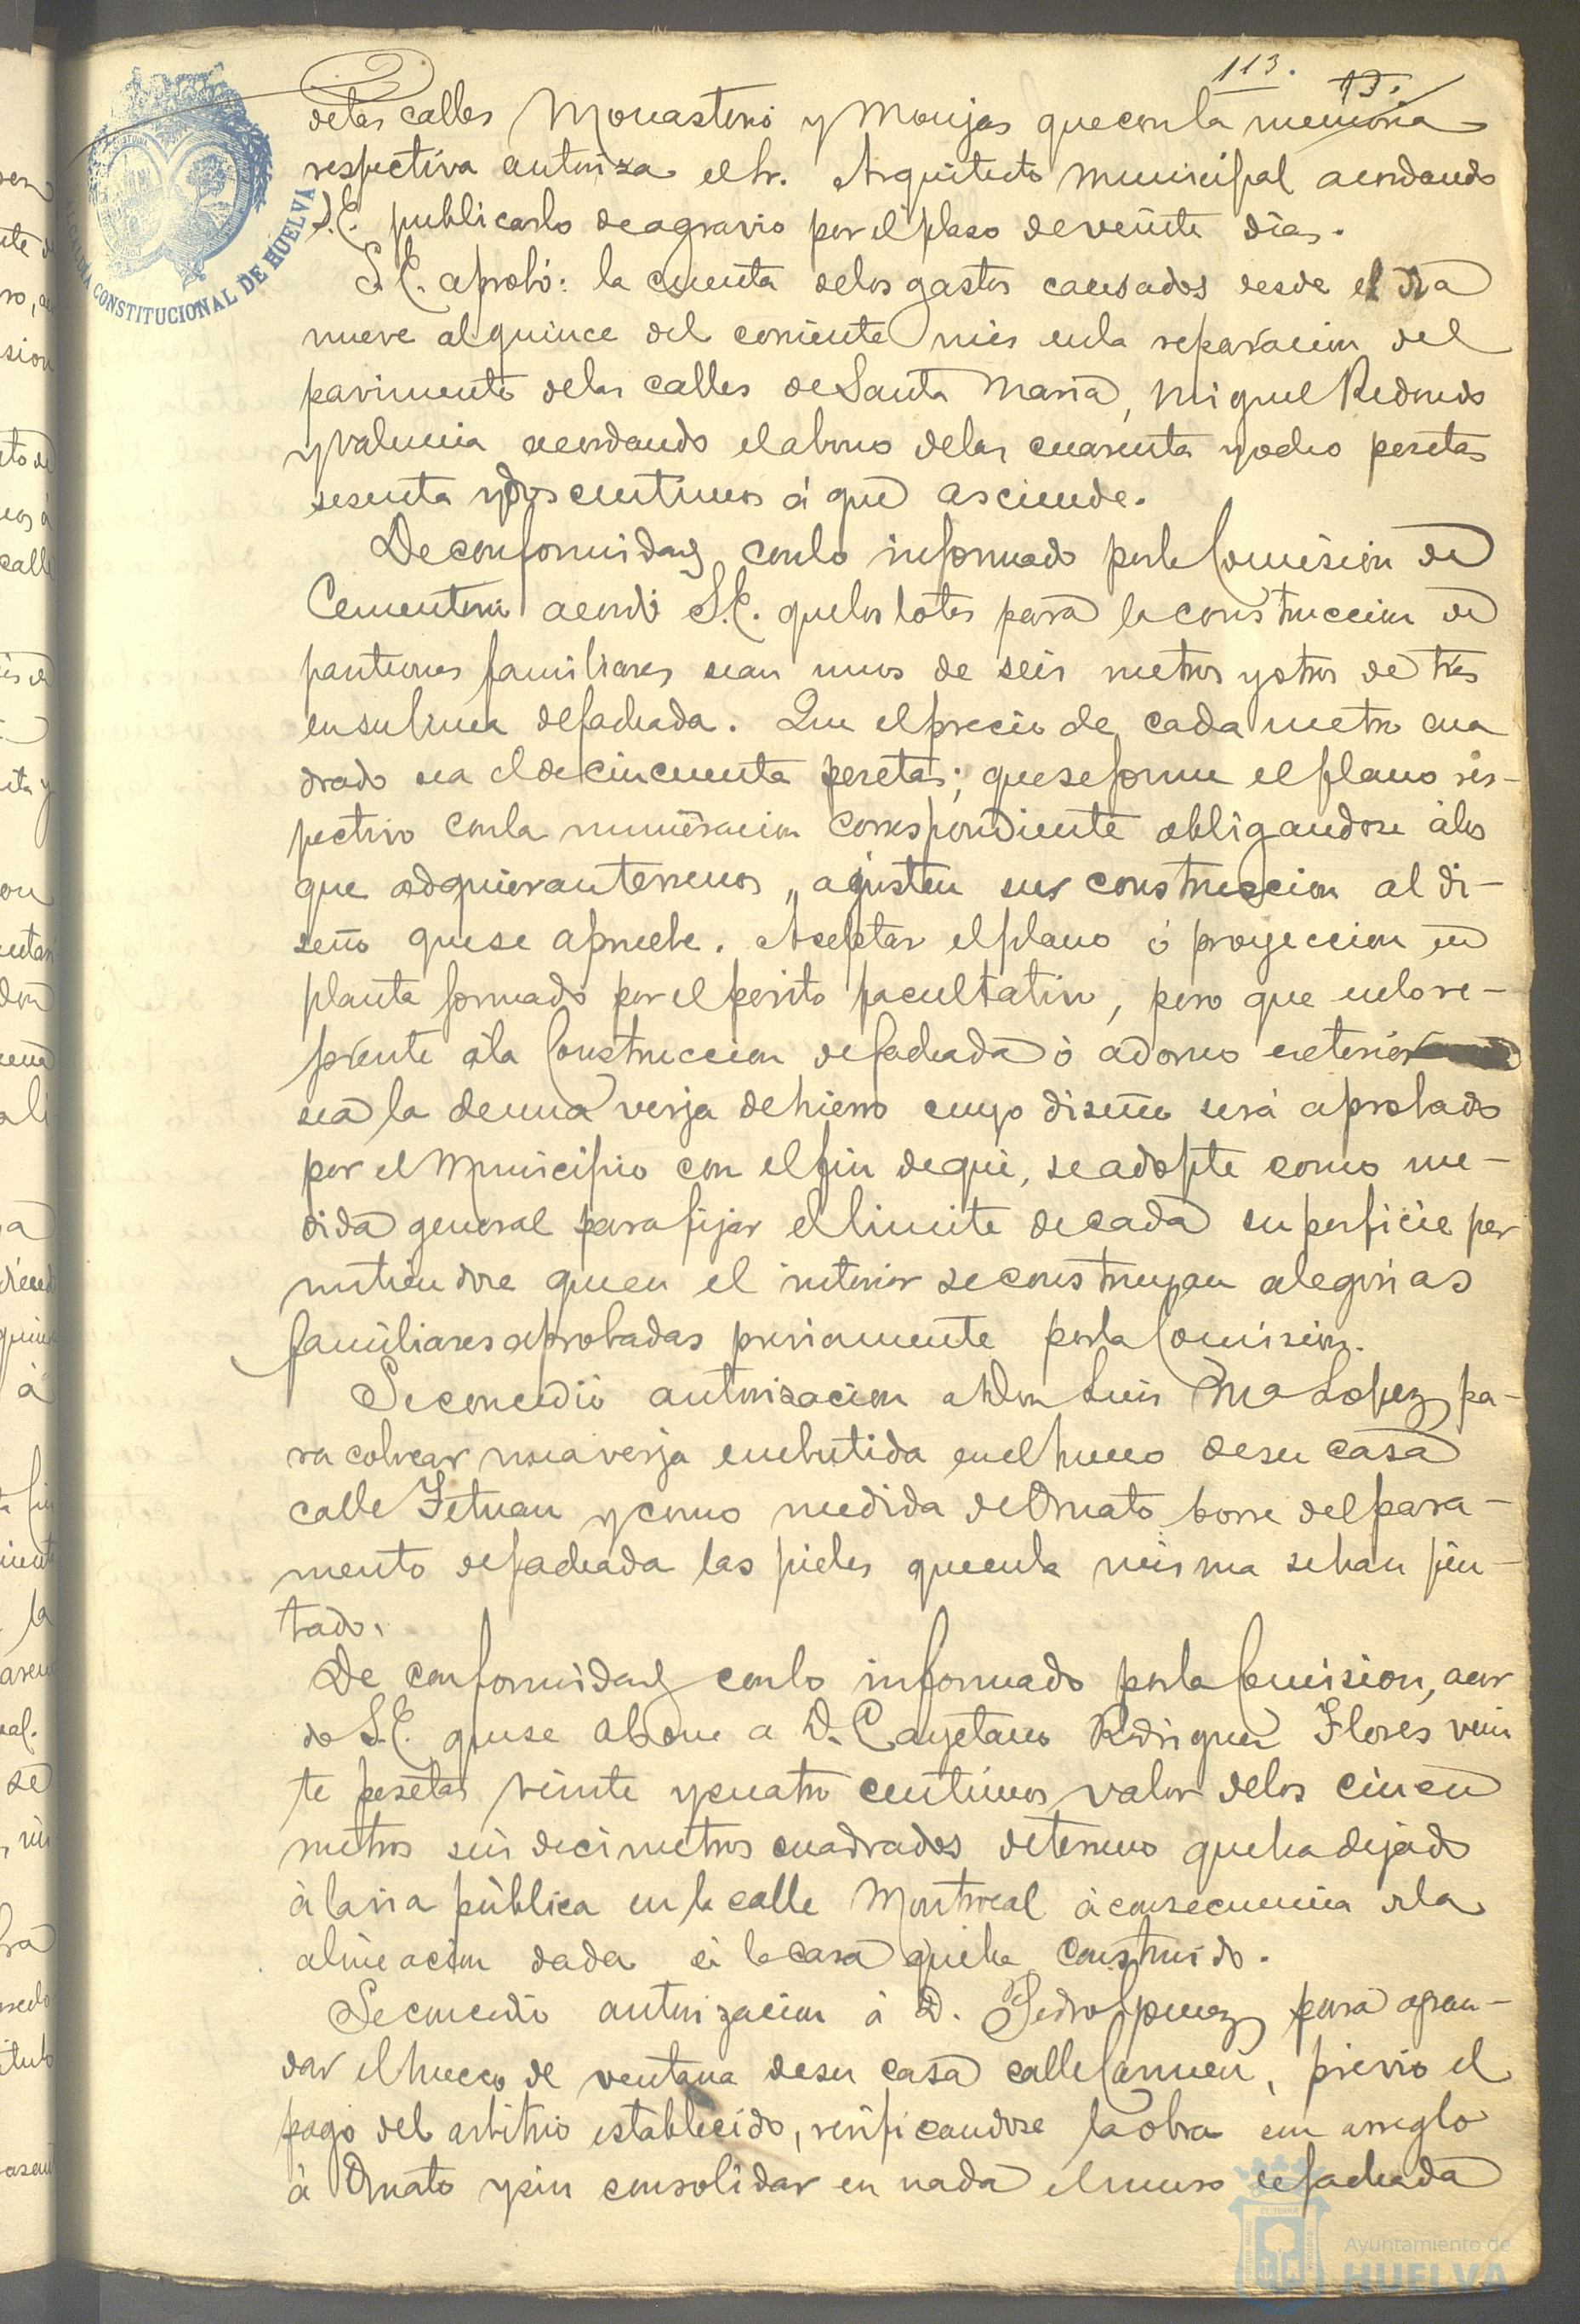 113.
13.
delas calles Monasterio y Monjas que con la memoria
respectiva autoriza el Sr. Arquitecto Municipal acordando
S.E. publicarlo de agravio por el plaso de veinte dias.
S.E. aprobó: la cuenta delos gastos causados desde el dia
nueve al quince del corriente mes en la reparacion del
pavimento delas calles de Santa Maria, Miguel Redondo
y Valencia acordando el abono delas cuarenta y ocho pesetas
sesenta y dos centimos á que asciende.
De conformidad con lo informado por la Comision de
Cementerio acordó S.E. que los lotes para la construccion de
panteones familiares sean unos de seis metros y otros de tres
en su linea de fachada. Que el precio de cada metro cua
drado sea el de cincuenta pesetas; que se forme el plano res-
pectivo con la numeracion correspondiente obligandose á los
que adquieran terrenos, ajusten sus construccion al di-
seño que se apruebe. Aceptar el plano ó proyeccion en
planta formado por el perito facultativo, pero que en lo re-
ferente á la Construccion de fachada ó adorno exterior
sea la de una verja de hierro cuyo diseño será aprobado
por el Municipio con el fin de que, se adopte como me-
dida general para fijar el limite de cada superficie per
mitiendose que en el interior se construyan alegorias
familiares aprobadas previamente por la Comision.
Se concedió autorizacion a Don Luis Ma Lopez pa-
ra colocar una verja embutida en el hueco de su casa
calle Tetuan y como medida de Ornato borre del para-
mento de fachada las pieles que en la misma se han pin-
tado.
De conformidad con lo informado por la Comision, acor
do S.E. que se abone a D. Cayetano Rodriguez Flores vein
te pesetas veinte y cuatro centimos valor delos cinco
metros seis decimetros cuadrados de terreno que ha dejado
á la via pública en la calle Montrocal á consecuencia de la
alineacion dada á la casa que ha construido.
Se concedió autorizacion á D. Pedro Lopez para agran-
dar el hueco de ventana de su casa calle Carmen, previo el
pago del arbitrio establecido, verificandose la obra con arreglo
á Ornato y sin consolidar en nada el muro de fachada
ALCALDIA CONSTITUCIONAL DE HUELVA
Ayuntamiento de
HUELVA